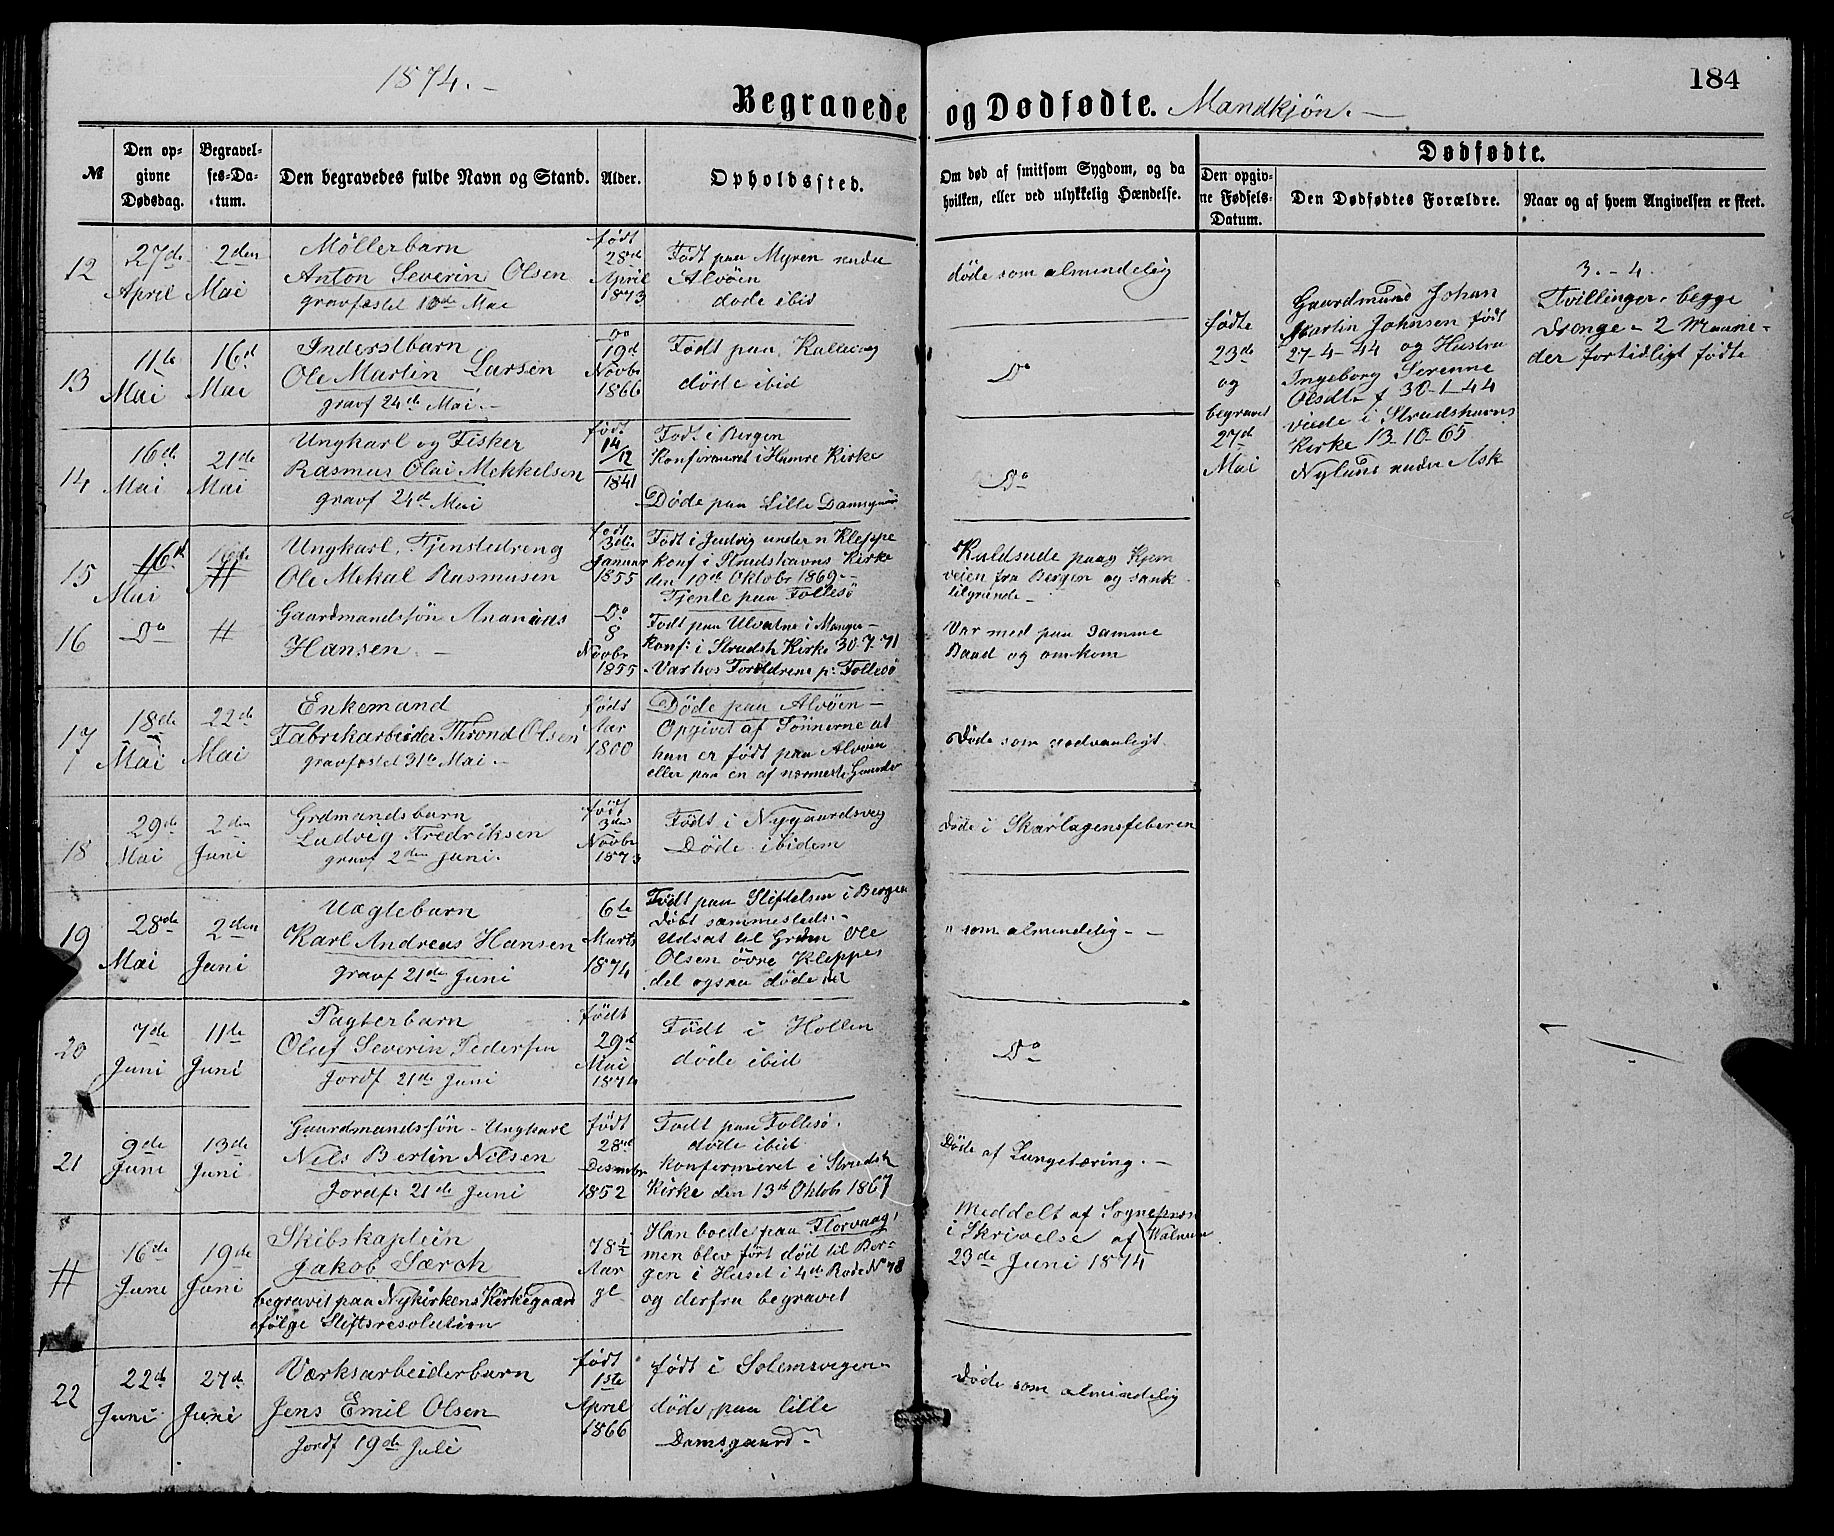 1874.-
184
Begravede og Dødfødte. Mandkjøn.-
№
Den op-
givne
Dødsdag.
Begravel-
ses-Da-
tum.
Den begravedes fulde Navn og Stand.
Alder.
Opholdssted.
Om død af smitsom Sygdom, og da
hvilken, eller ved ulykkelig Hændelse.
Dødfødte.
Den opgiv-
ne Fødsels-
Datum.
Den Dødfødtes Forældre.
Naar og af hvem Angivelsen er skeet.
12
27de
April
2den
Mai
Møllerbarn
Anton Severin Olsen
gravfæstet 10de Mai
født
28de
April
1873
Født paa Myren under
Alvøen
døde ibid
døde som almindelig
13
11te
Mai
16d
Mai
Inderstbarn
Ole Martin Larsen
gravf 24de Mai.-
Do
19d
Novbr
1866
Født paa
døde ibid
Do
14
16d
Mai
21de
Mai
Ungkarl og Fisker
Rasmus Olai Mekkelsen
gravf 24d Mai
født
14/12
1841
Født i Bergen
Konfirmeret i Hamre Kirke
Døde paa Lille Damsgaard
Do
15
16d
Mai
#
Ungkarl, Tjenstedreng
Ole Mekal Rasmusen
født
3die
Januar
1855
Født i Juvig under n Kleppe
konf i Strudshavns Kirke
den 19d Oktobr 1869.-
Tjente paa Follesø
Kuldseilede paa Hjem
veien fra Bergen og sank
tilgrunde-
16
Do
#
Gaardmandssøn Ananias
Hansen.-
Do
8
Novbr
1855
Født paa Ulvatne i Manger-
konf: i Strudsh Kirke 30.7.71
Var hos Forældrene p: Follesø
Var med paa samme
Baad og omkom
17
18de
Mai
22de
Mai
Enkemand
Fabrikarbeider Thrond Olsen
gravfæstet 31te Mai.-
født
Aar
1800
Døde paa Alvøen-
Opgivet af Sønnerne at
han er født paa Alvøen
eller paa en af nærmeste Gaarder
Døde som sædvanligt.
18
29de
Mai
2den
Juni
Grdmandsbarn
Ludvig Fredriksen
gravf 2den juni.
født
3die
Novbr
1873
Født i Nygaardsvig
Døde ibidem
Døde i Skarlagensfeberen
19
28de
Mai
2den
Juni
Uægtebarn
Karl Andreas Hansen
gravf 21de Juni
6te
Marts
1874
Født paa Stiftelsen i Bergen
Døbt sammesteds.-
Udsat til Grdm Ole
Olsen øvre Kleppe,
det ogsaa døde
" som almindelig--
20
7de
Juni
11te
Juni
Pagterbarn
Oluf Severin Pedersen
Jordf 21de Juni
født
29d
Mai
1874
Født i Hollen
døde ibid
Do
21
9de
Juni
13de
Juni
Gaardmandssøn-Ungkarl
Nils Bertin Nilsen
Jordf: 21de Juni
født
28de
Desembr
1852
Født paa Follesø.
døde ibid.
Konfirmeret i Strudsh
Kirke den 13de Oktobr 1867
Døde af Lungetæring.-
#
16de
Juni
19de
Juni
Skibskaptein
Jakob Særch
begravet paa Nykirkens Kirkegaard
ifølge Stiftsresolution
78½
Aar
gl
Han boede paa Florvaag,
men blev ført død til Ber-
gen i Huset i 4de Rode N 78
og derfra begravet
Meddelt af Sogneprest
i Skrivelse af
23de Juni 1874
22
22de
Juni
27de
Juni
Værksarbeiderbarn
Jens Emil Olsen
Jordf 19de Juli
født
1ste
April
1866
født i Solemsvigen
døde paa lille
Damsgaard
Døde som almindelig
fødte
23de
og
begravet
27d
Mai
Gaardmand Johan
Martin Johnsen født
27-4-44 og Hustru
Ingeborg Serenne
Olsdt f 30-1-44
viede i Strudshavns
Kirke 13-10-65
Nylund under Ask
3.-4.
Tvillinger, begge
Drenge- 2 Maane-
der fortidligt fødte